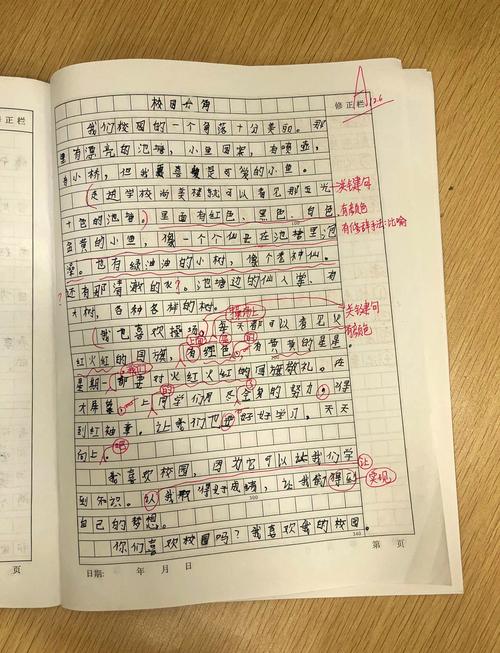 校园一角
修正栏
A
我们校园的一个角落十分美丽。那
里有漂亮的池塘，小鱼
有小桥，但我最喜欢是可爱的小鱼。
走进学校就可以看见那五光
关键句
十色的池塘。里面有红色、黑色、白色
有颜色
金黄的小鱼，像一个个仙女在池塘里泡
有修辞手法:比喻
澡。也有绿油油的小树，像个
还有那清澈的水？池塘边的仙人掌，有
大树，各种各样的树。
操场上
关键句
我也喜欢操场。每天都可以看见火
有颜色
红火红的国旗，有绿色，有黄黄的星星
星期一都要对火红火红的国旗敬礼。在
大屏幕上同学们用尽全身的努力，得
到红袖章。让我们也好好学习，天天
向上。吧
我喜欢校园，因为它可以让我们学
让
到知识。以我得好成绩，让我们得到
实现
300
自己的梦想。
你们喜欢校园吗？我喜欢我的校园。
340
日期: 年 月 日
第 页
页